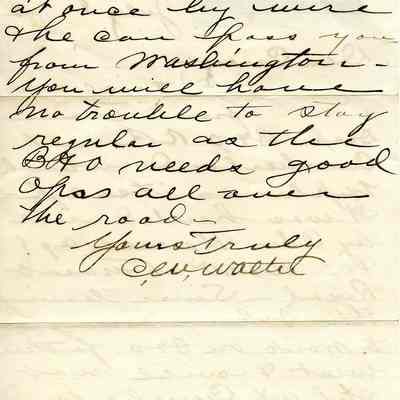 at once by wire
& he can pass you
from Washington -
You will have
no trouble to stay
regular as the
B & O needs good
Oprs all over
the road -
Yours Truly